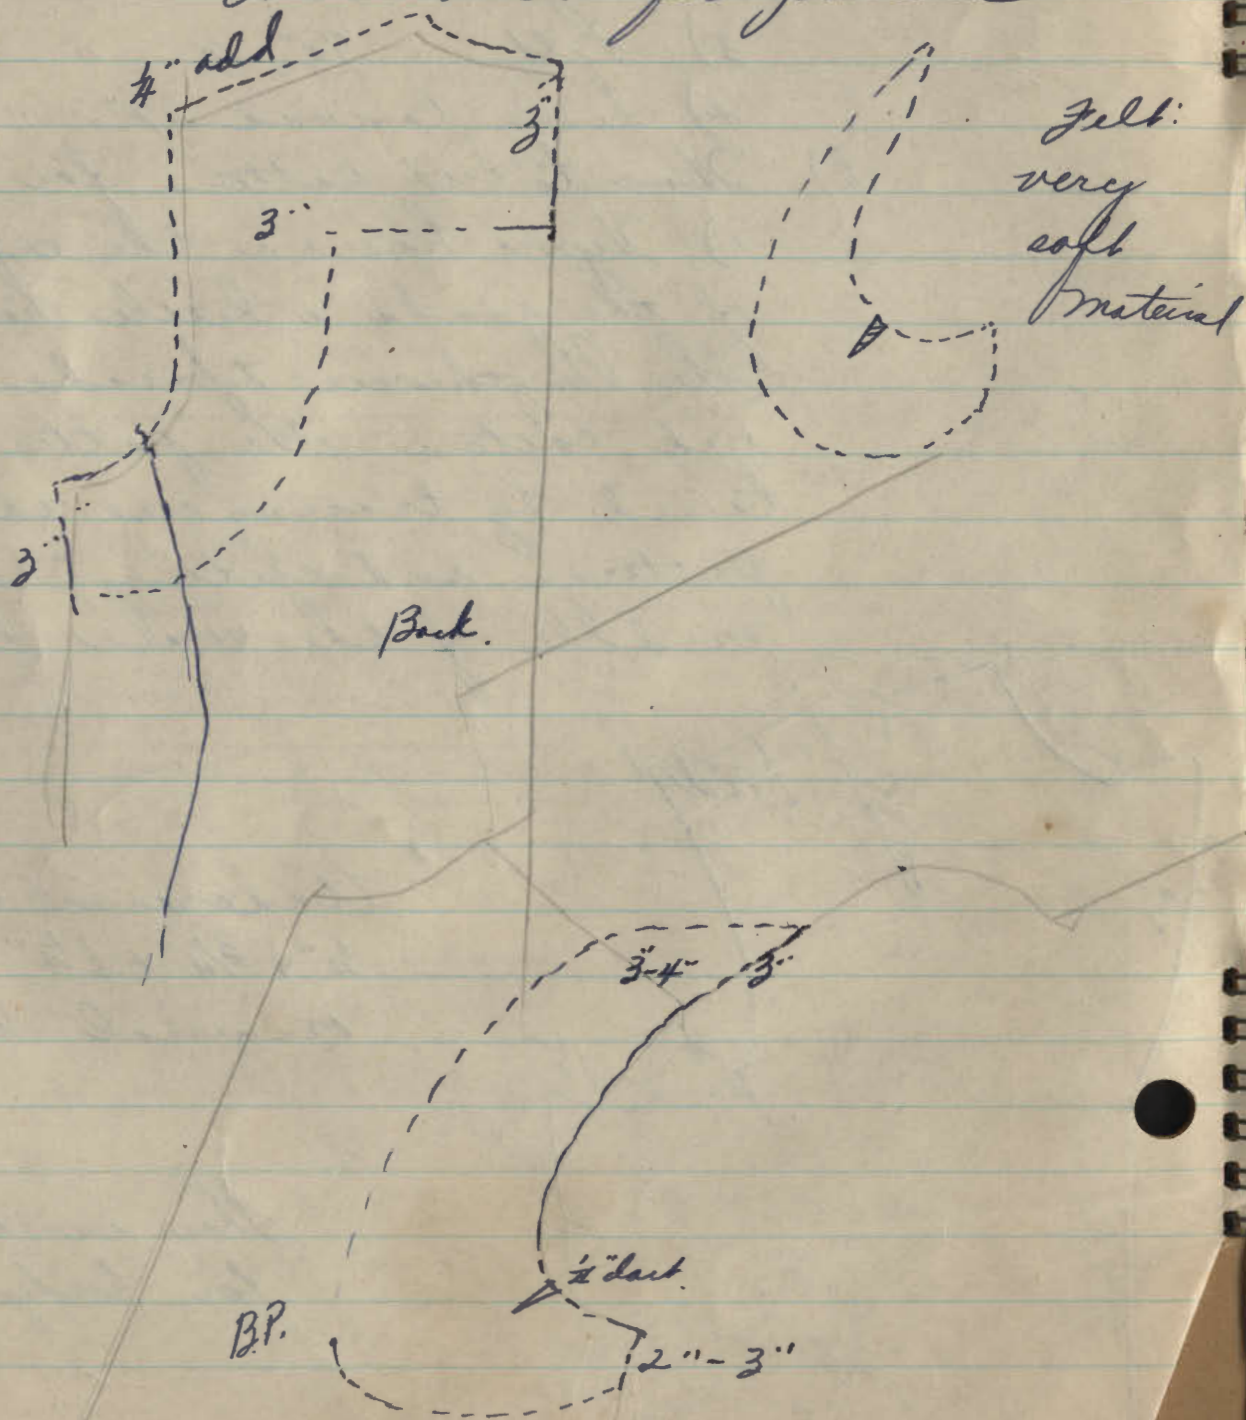 1/4" add
3"
3"
Felt:
very
soft
mateiral
3"
Back.
3-4" 3"
1/2" dart.
B.P.
2"-3"